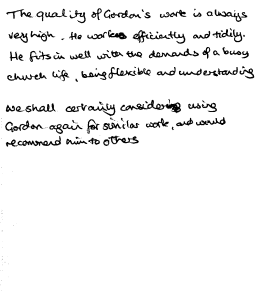 The quality of Gordon's work is always
very high. He works efficiently and tidily.
He fits in well with the demands of a busy
church life, being flexible and understanding
We shall certainly consider using
Gordon again for similar work, and would
recommend him to others